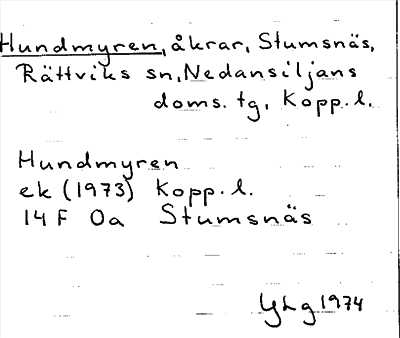 Hundmyren, åkrar, Stumsnäs,
Rättviks sn, Nedansiljans
doms. tg, Kopp. l.
Hundmyren
ek (1973) Kopp. l.
14 F Oa Stumsnäs
YLg 1974